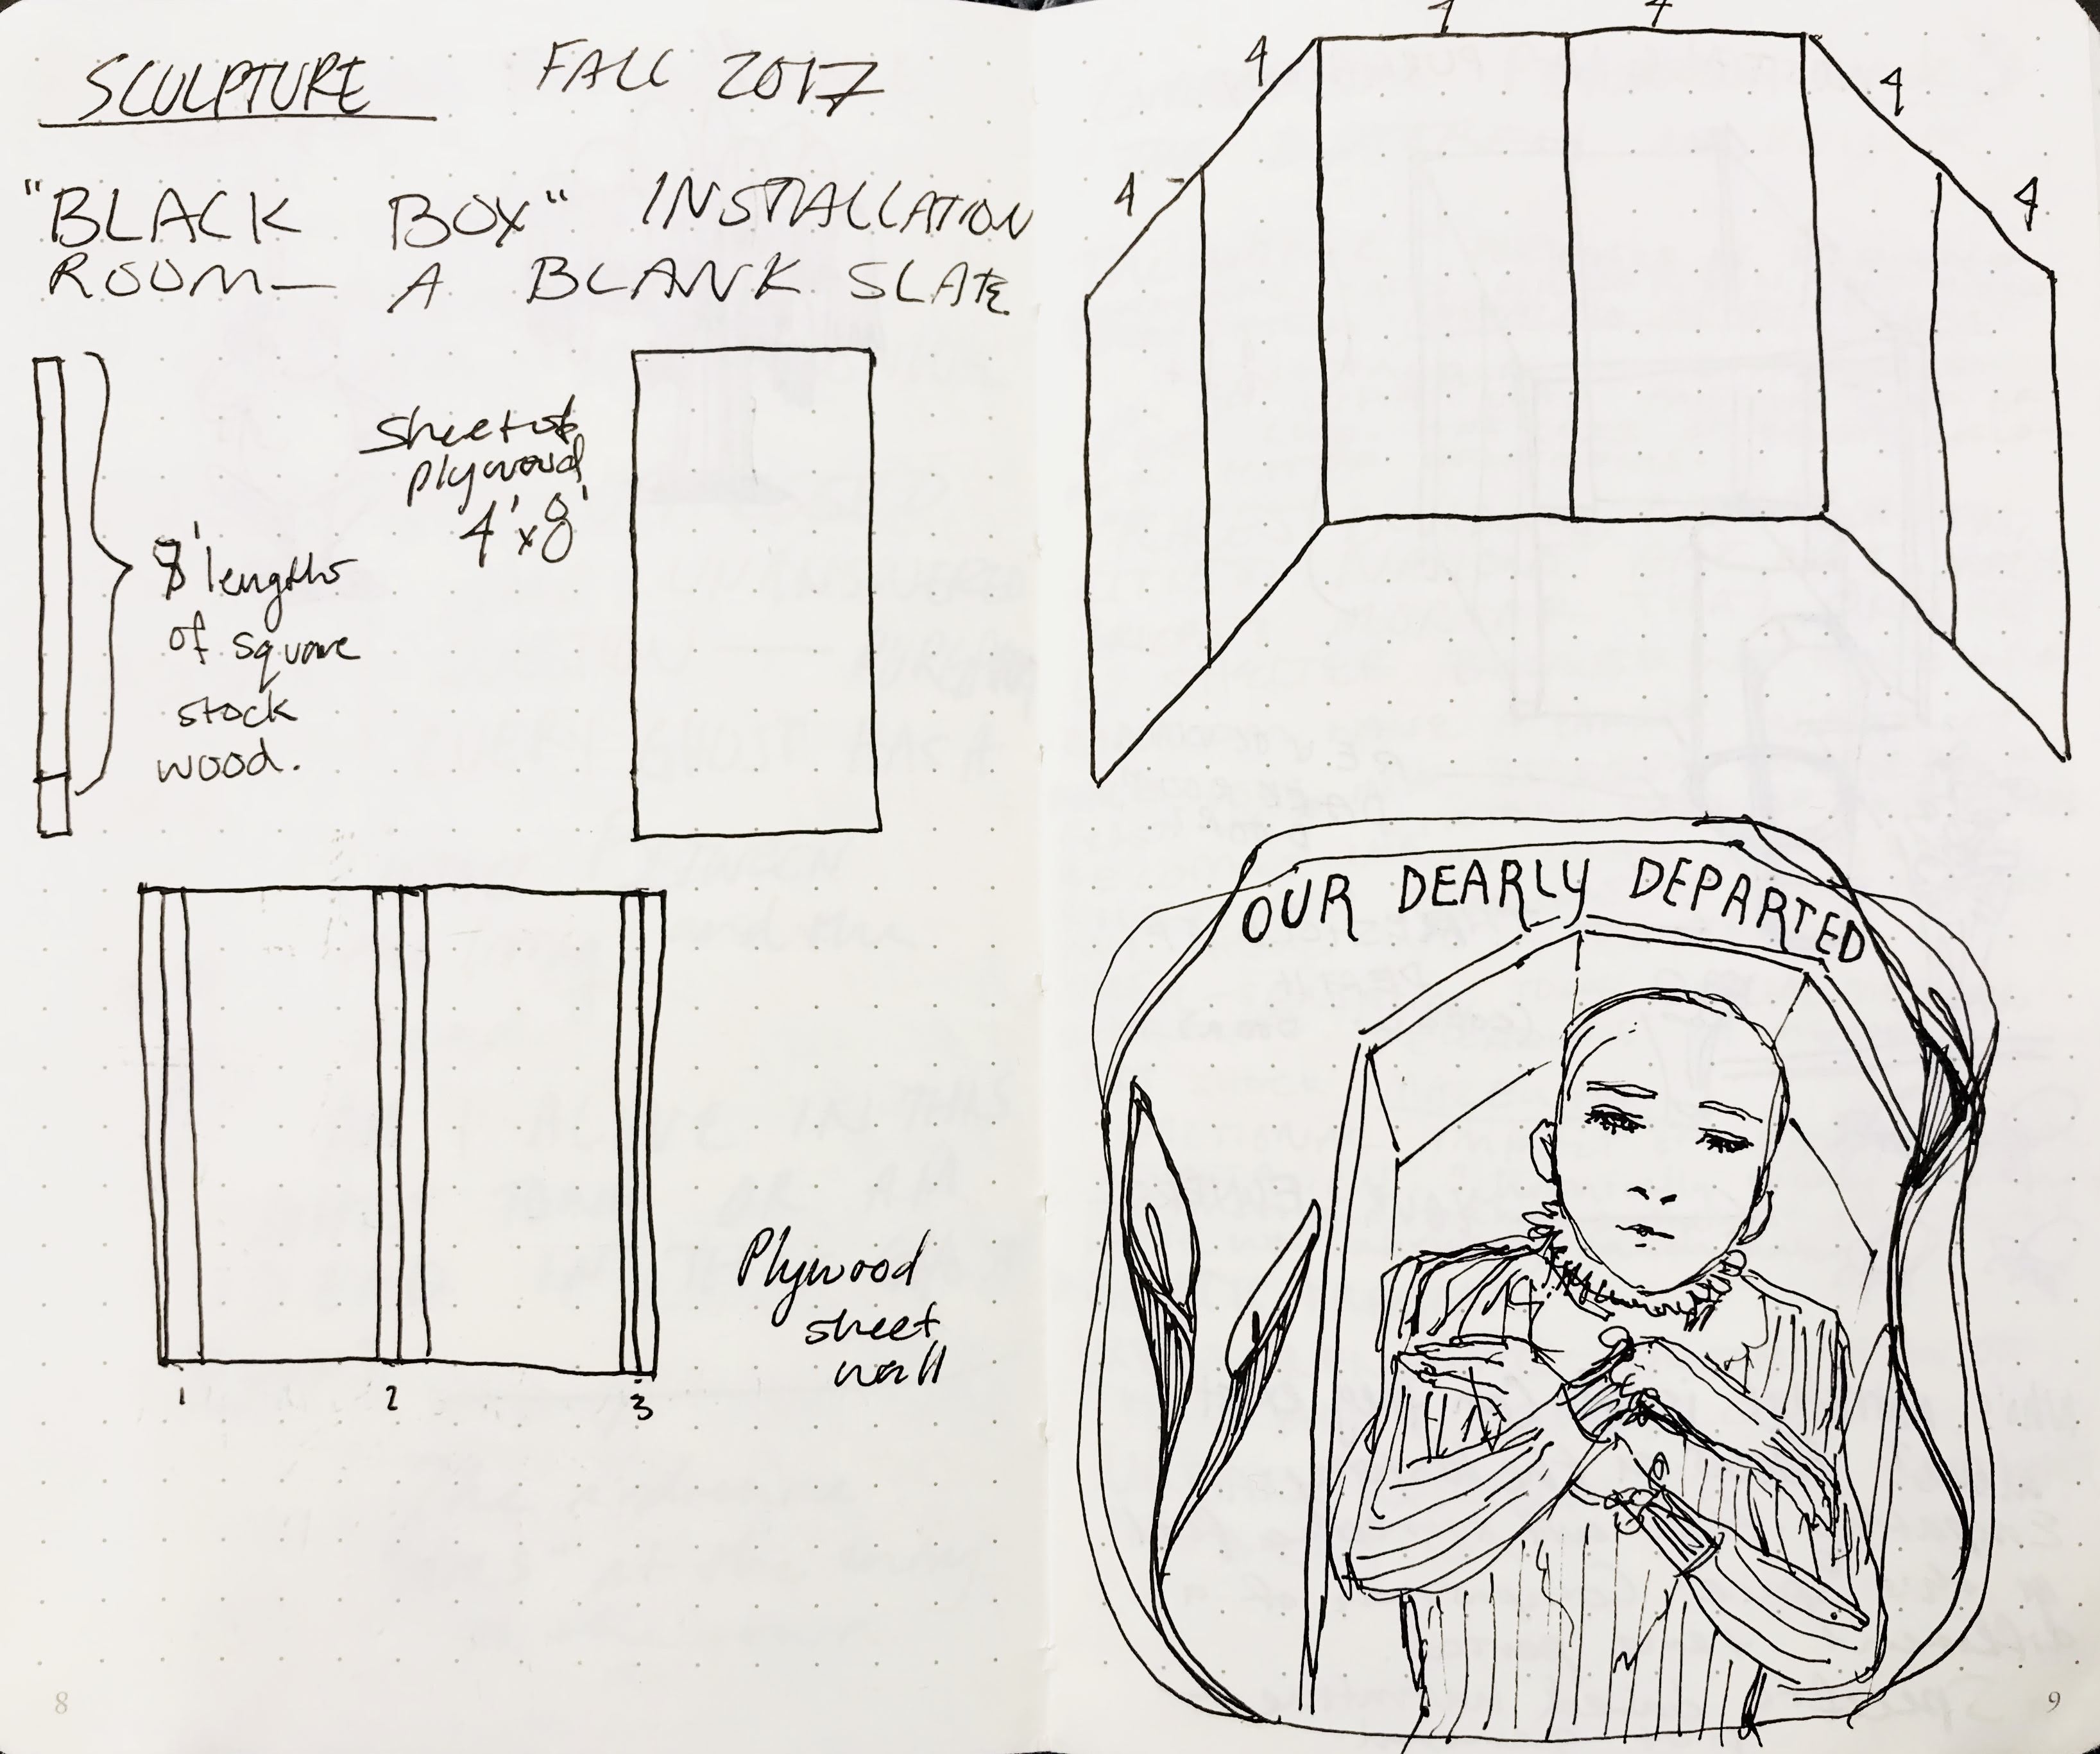 SCULPTURE FALL 2017
"BLACK BOX" INSTALLATION
ROOM— A BLANK SLATE
8' lengths
of square
stock
wood.
sheet of
plywood
4'x8'
1 2 3
Plywood
sheet
wall
8
4 4
4 4
4 4
OUR DEARLY DEPARTED
9